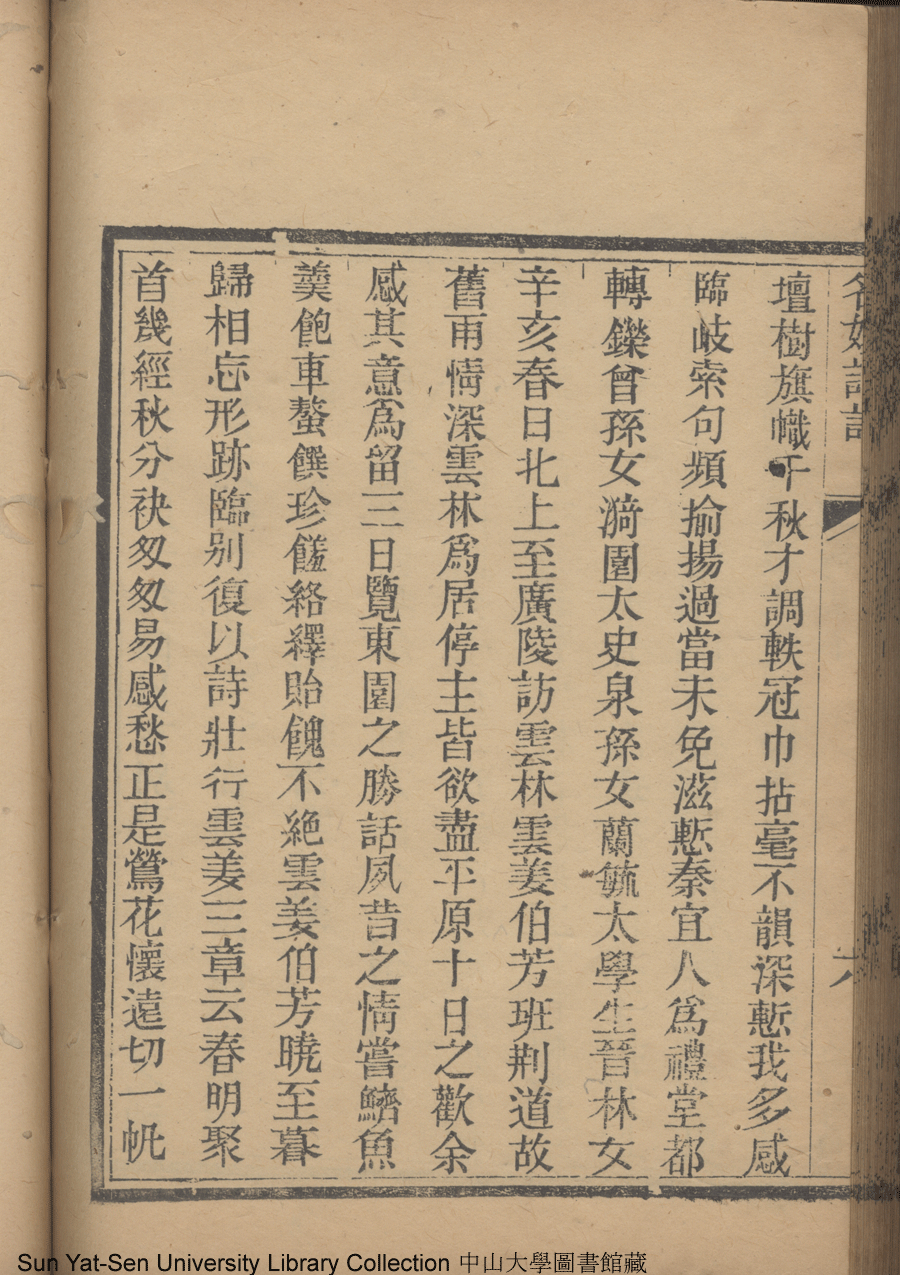 名媛詩話
六
壇樹旗幟千秋才調軼冠巾拈毫不韻深慙我多感
臨岐索句頻揄揚過當未免滋慙秦宜人為禮堂都
轉鑅曾孫女漪園太史泉孫女蘭毓太學生晉林女
辛亥春日北上至廣陵訪雲林雲姜伯芳班荆道故
舊雨情深雲林爲居停主皆欲盡平原十日之歡余
感其意爲留三日覽東園之勝話夙昔之情嘗鱭魚
羹飽車螯饌珍饈絡繹貽餽不絕雲姜伯芳曉至暮
歸相忘形跡臨别復以詩壯行雲姜三章云春明聚
首幾經秋分袂匆匆易感愁正是鶯花懷遠切一帆
Sun Yat-Sen University Library Collection 中山大學圖書館藏